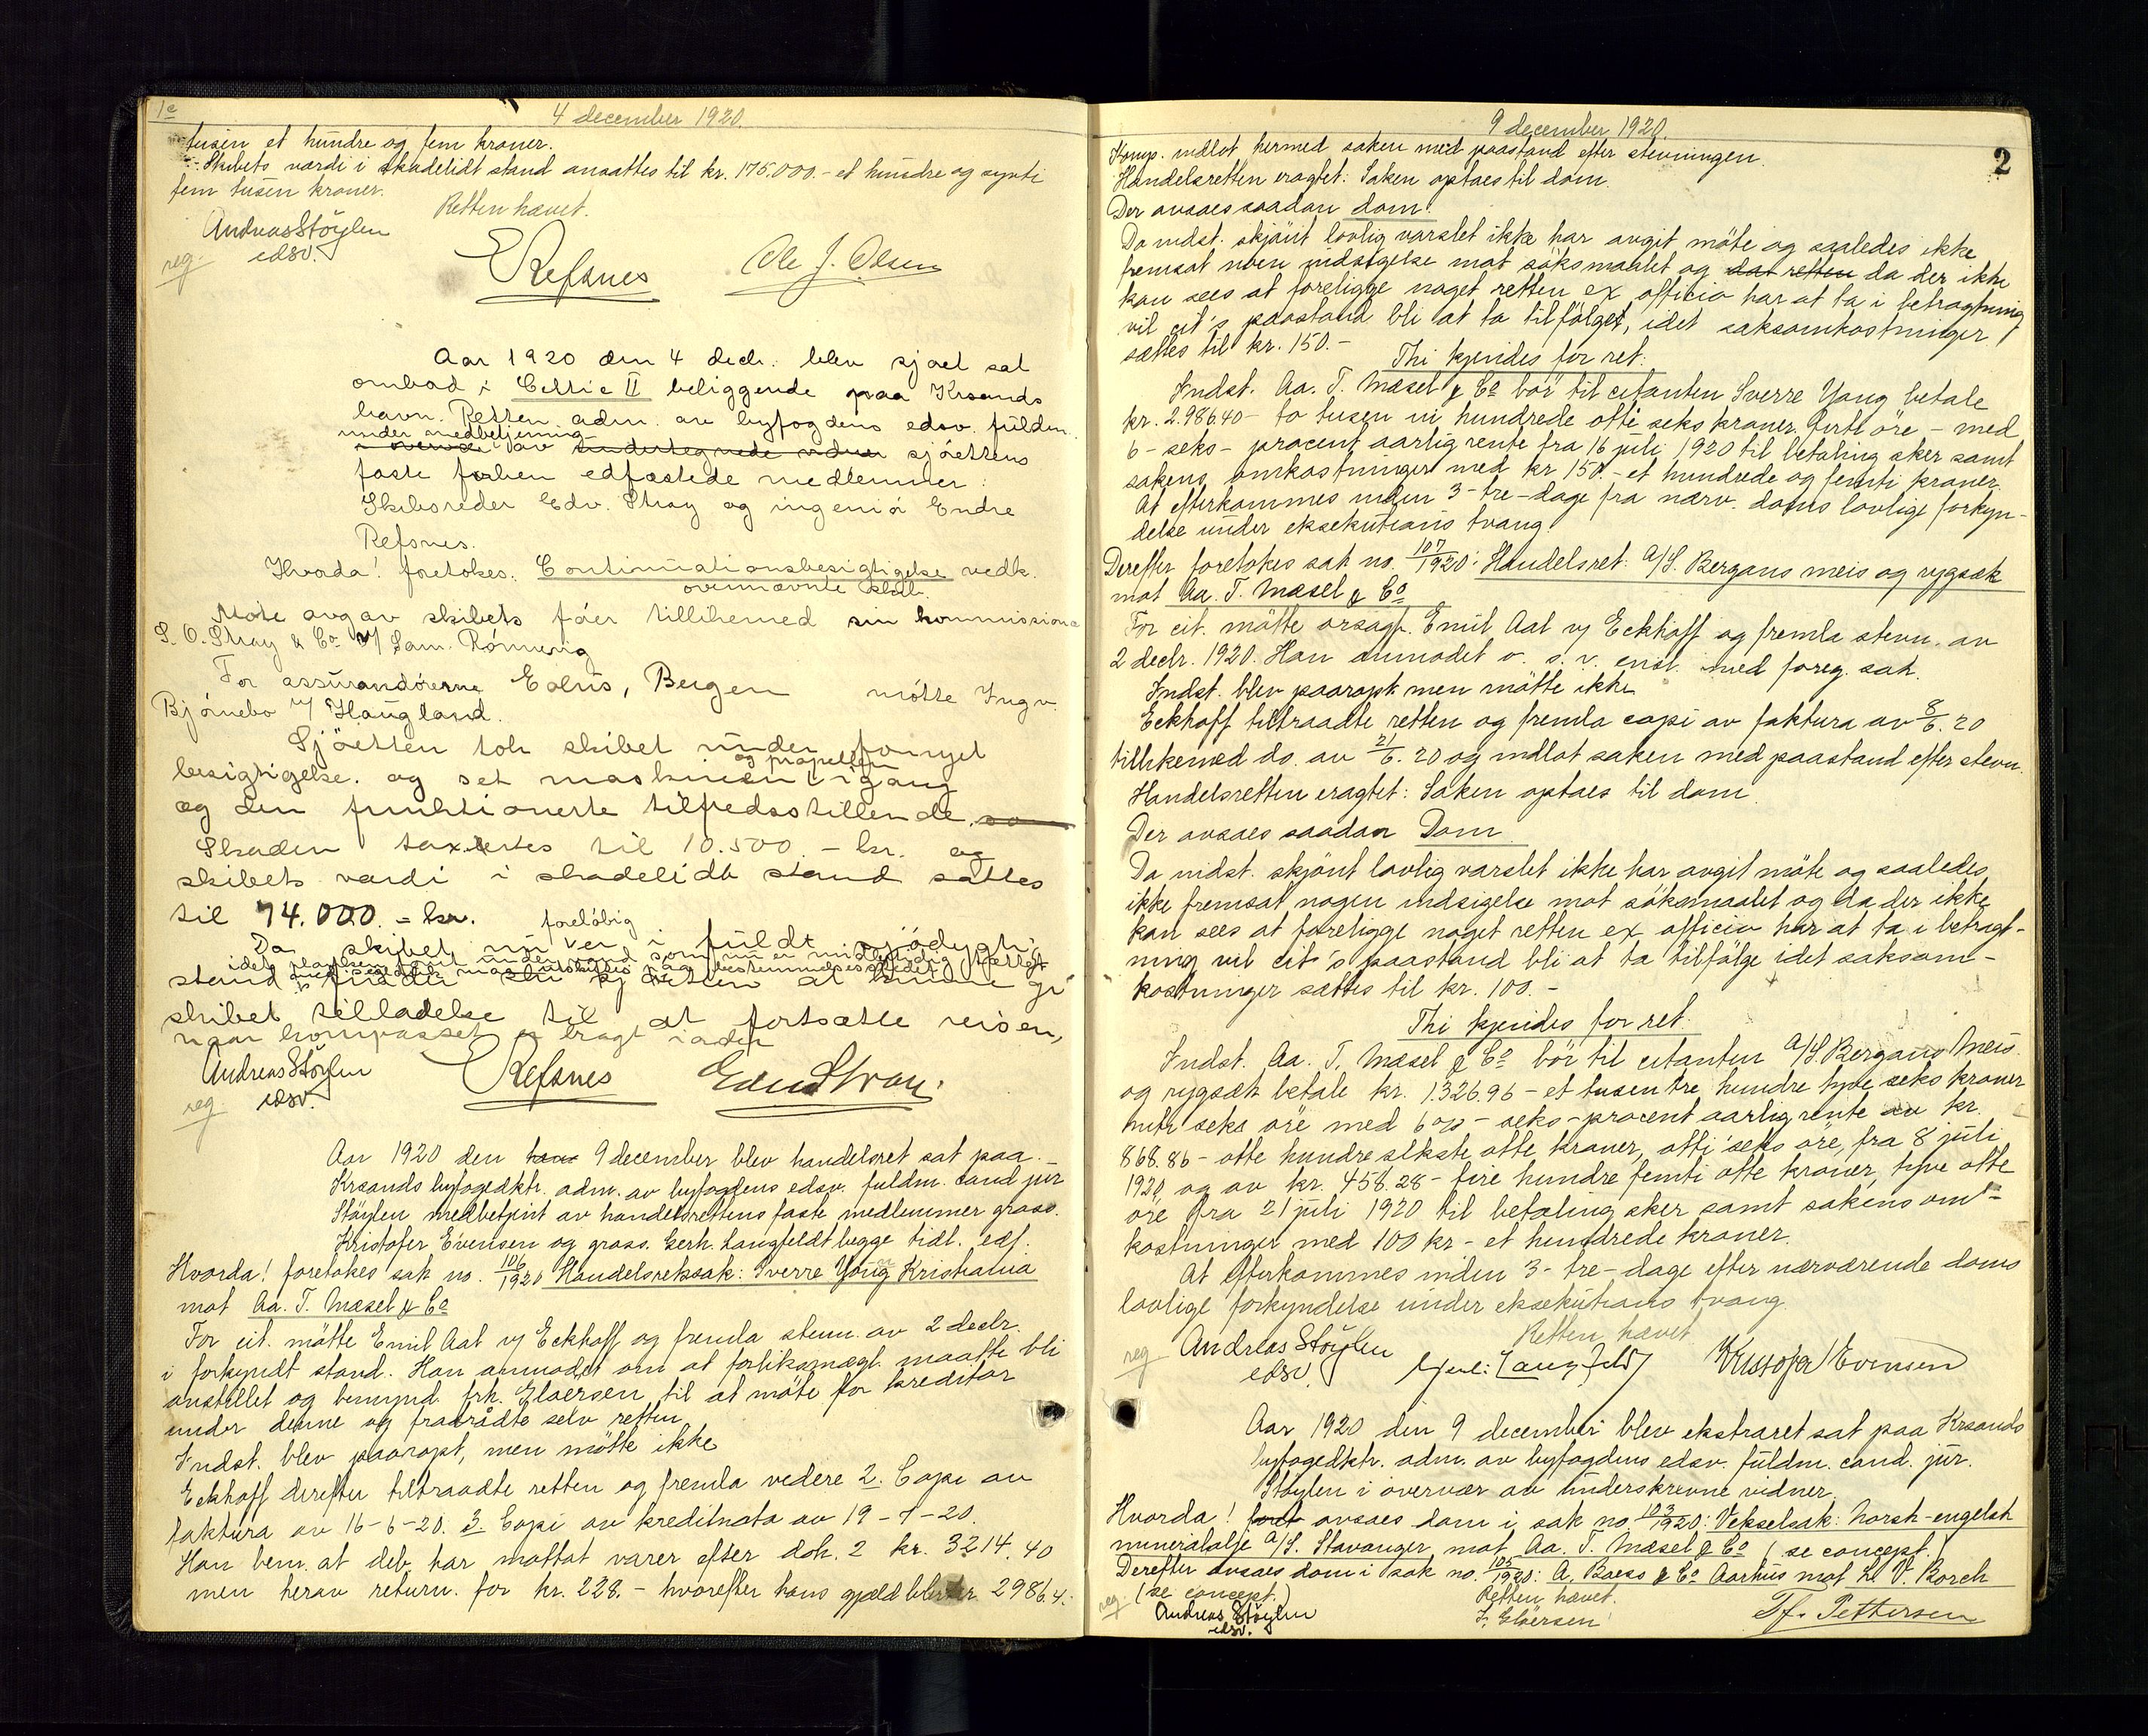 1a
4 december 1920.
tusen et hundre og fem kroner.
Skibets værdi i skadelidt stand ansattes til kr. 175.000.- et hundre og sytti
fem tusen kroner.
Retten hævet.
Andreas Støylen
edsv.
reg.
E Refsnes
Ole J. Olsen
Aar 1920 den 4 decbr. blev sjøret sat
ombord i Celtic II beliggende paa Krsands
havn. Retten adm. av byfogdens edsv. fuldm.
under medbetjening
i overvær av undertegnede vidner sjørettens
faste forhen edfæstede medlemmer:
Skibsreder Edv. Stray og ingeniør Endre
Refsnes.
Hvorda! foretokes: Continuationsbesigtigelse vedk.
ovennævnte skib.
Møte avgav skibets fører tillikemed sin kommissionær
S. O. Stray & Co v/ Sam. Rönning
For assurandørerne Eolus, Bergen møtte Ingv.
Bjørnebo v/ Haugland.
Sjøretten tok skibet under fornyet
og propellen
besigtigelse. og set maskinen i gang
og den funktionerte tilfredsstillende. so
Skaden taxertes til 10.500.- kr. og
skibets værdi i skadelidt stand sattes
til 74.000.- kr.
foreløbig
Da skibet nu er i fuldt sjødygtig
idet planken under vand som nu er midlertidig tættet
maa utskiftes paa bestemmelsesstedet
stand finder sjøretten at kunne gi
skibet tilladelse til at fortsætte reisen,
naar kompasset er bragt i orden
Andreas Støylen
edsv.
reg
E Refsnes
Edv Stray.
Aar 1920 den 9 december blev handelsret sat paa
Krsands byfogedktr. adm. av byfogdens edsv. fuldm. cand jur
Støylen medbetjent av handelsrettens faste medlemmer gross.
Kristofer Evensen og gross. Gerh. Langfeldt begge tidl. edf.
Hvorda! foretokes sak no. 106/1920 Handelsretssak: Sverre Young Kristiania
mot Aa. T. Mæsel & Co
For cit. møtte Emil Aal v/ Eckhoff og fremla stevn. av 2 decbr.
i forkyndt stand. Han anmodet om at forliksmægl. maatte bli
anstillet og bemynd. frk. Gløersen til at møte for kreditor
under denne og fratrådte selv retten
Indst. blev paaropt, men møtte ikke
Eckhoff derefter tiltraadte retten og fremla videre 2. Copi av
faktura av 16-6-20. 3. Copi av kreditnota av 19-7-20.
Han bem. at deb. har mottat varer efter dok. 2 kr. 3214.40
men herav return. for kr. 228.- hvorefter hans gjæld blir kr. 2986.4.
9 december 1920.
2
Komp. indlot hermed saken med paastand efter stevningen.
Handelsretten eragtet: Saken optaes til dom.
Der avsaes saadan dom:
Da indst. skjönt lovlig varslet ikke har avgit möte og saaledes ikke
fremsat noen indsigelse mot söksmaalet og dat retten da der ikke
kan sees at foreligge noget retten ex officio har at ta i betragtning
vil cit's paastand bli at ta tilfölget, idet saksomkostninger
sættes til kr. 150.-
Thi kjendes for ret:
Indst. Aa. T. Mæsel & Co bör til citanten Sverre Yong betale
kr. 2.986.40 - to tusen ni hundrede otti seks kroner förti öre - med
6 - seks - procent aarlig rente fra 16 juli 1920 til betaling sker samt
sakens omkostninger med kr 150.- et hundrede og femti kroner.
At efterkommes inden 3 - tre - dage fra nærv. doms lovlige forkyn-
delse under eksekutions tvang.
Derefter foretokes sak no. 107/1920: Handelsret: A/S. Bergans meis og rygsæk
mot Aa. T. Mæsel & Co
For cit. mötte orsagf. Emil Aal v/ Eckhoff og fremla stevn. av
2 decbr. 1920. Han anmodet o. s. v. enst. med foreg. sak.
Indst. blev paaropt men mötte ikke
Eckhoff tiltraadte retten og fremla copi av faktura av 8/6. 20
tillikemed do. av 21/6. 20 og indlot saken med paastand efter stevn.
Handelsretten eragtet: Saken optaes til dom
Der avsaes saadan Dom
Da indst. skjönt lovlig varslet ikke har avgit möte og saaledes
ikke fremsat nogen indsigelse mot söksmaalet og da der ikke
kan sees at foreligge noget retten ex officio har at ta i betragt-
ning vil cit's paastand bli at ta tilfölge idet saksom-
kostninger sættes til kr. 100.-
Thi kjendes for ret:
Indst. Aa. T. Mæsel & Co bör til citanten A/S. Bergans Meis
og rygsæk betale kr. 1.326.96 - et tusen tre hundre tyve seks kroner
nitti seks öre med 6% - seks - procent aarlig rente av kr.
868.86 - otte hundre sekste otte kroner, otti seks öre, fra 8 juli
1920, og av kr. 458.28 - fire hundre femti otte kroner, tyve otte
öre fra 21 juli 1920 til betaling sker samt sakens om-
kostninger med 100 kr - et hundrede kroner.
At efterkommes inden 3 - tre - dage efter nærværende doms
lovlige forkyndelse under eksekutions tvang.
Retten hævet
reg
Andreas Støylen
edsv.
Gerh. Langfeldt
Kristofer Evensen
Aar 1920 den 9 december blev ekstraret sat paa Krsands
byfogedktr. adm. av byfogdens edsv. fuldm. cand. jur.
Støylen i overvær av underskrevne vidner.
Hvorda! foret avsaes dom i sak no 103/1920: Vekselsak: Norsk-engelsk
mineralolje A/S. Stavanger mot Aa. T. Mæsel & Co (se concept.)
Derefter avsaes dom i sak no. 105/1920: A. Baess & Co Aarhus mot L. V. Borch
(se concept.)
Retten hævet.
reg.
Andreas Støylen
edsv.
F. Gløersen
Tf. Pettersen